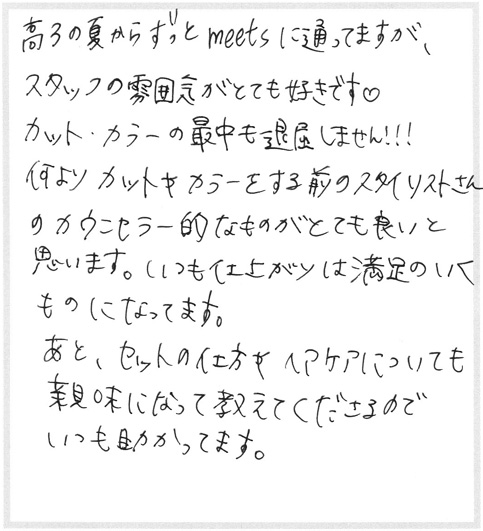 高3の夏からずっとmeetsに通ってますが、
スタッフの雰囲気がとても好きです♡
カット・カラーの最中も退屈しません!!!
何よりカットやカラーをする前のスタイリストさん
のカウンセラー的なものがとても良いと
思います。いつも仕上がりは満足のいく
ものになってます。
あと、セットの仕方やヘアケアについても
親味になって教えてくださるので
いつも助かってます。